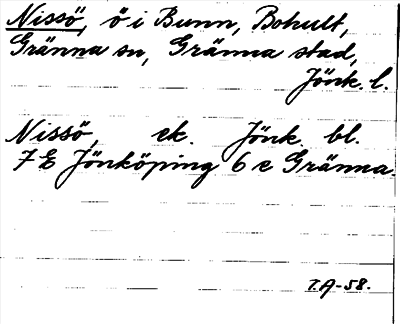 Nissö, ö i Bunn, Bohult,
Gränna sn, Gränna stad,
Jönk. l.
Nissö, ek. Jönk. bl.
7 E Jönköping 6 e Gränna.
T.A-58.